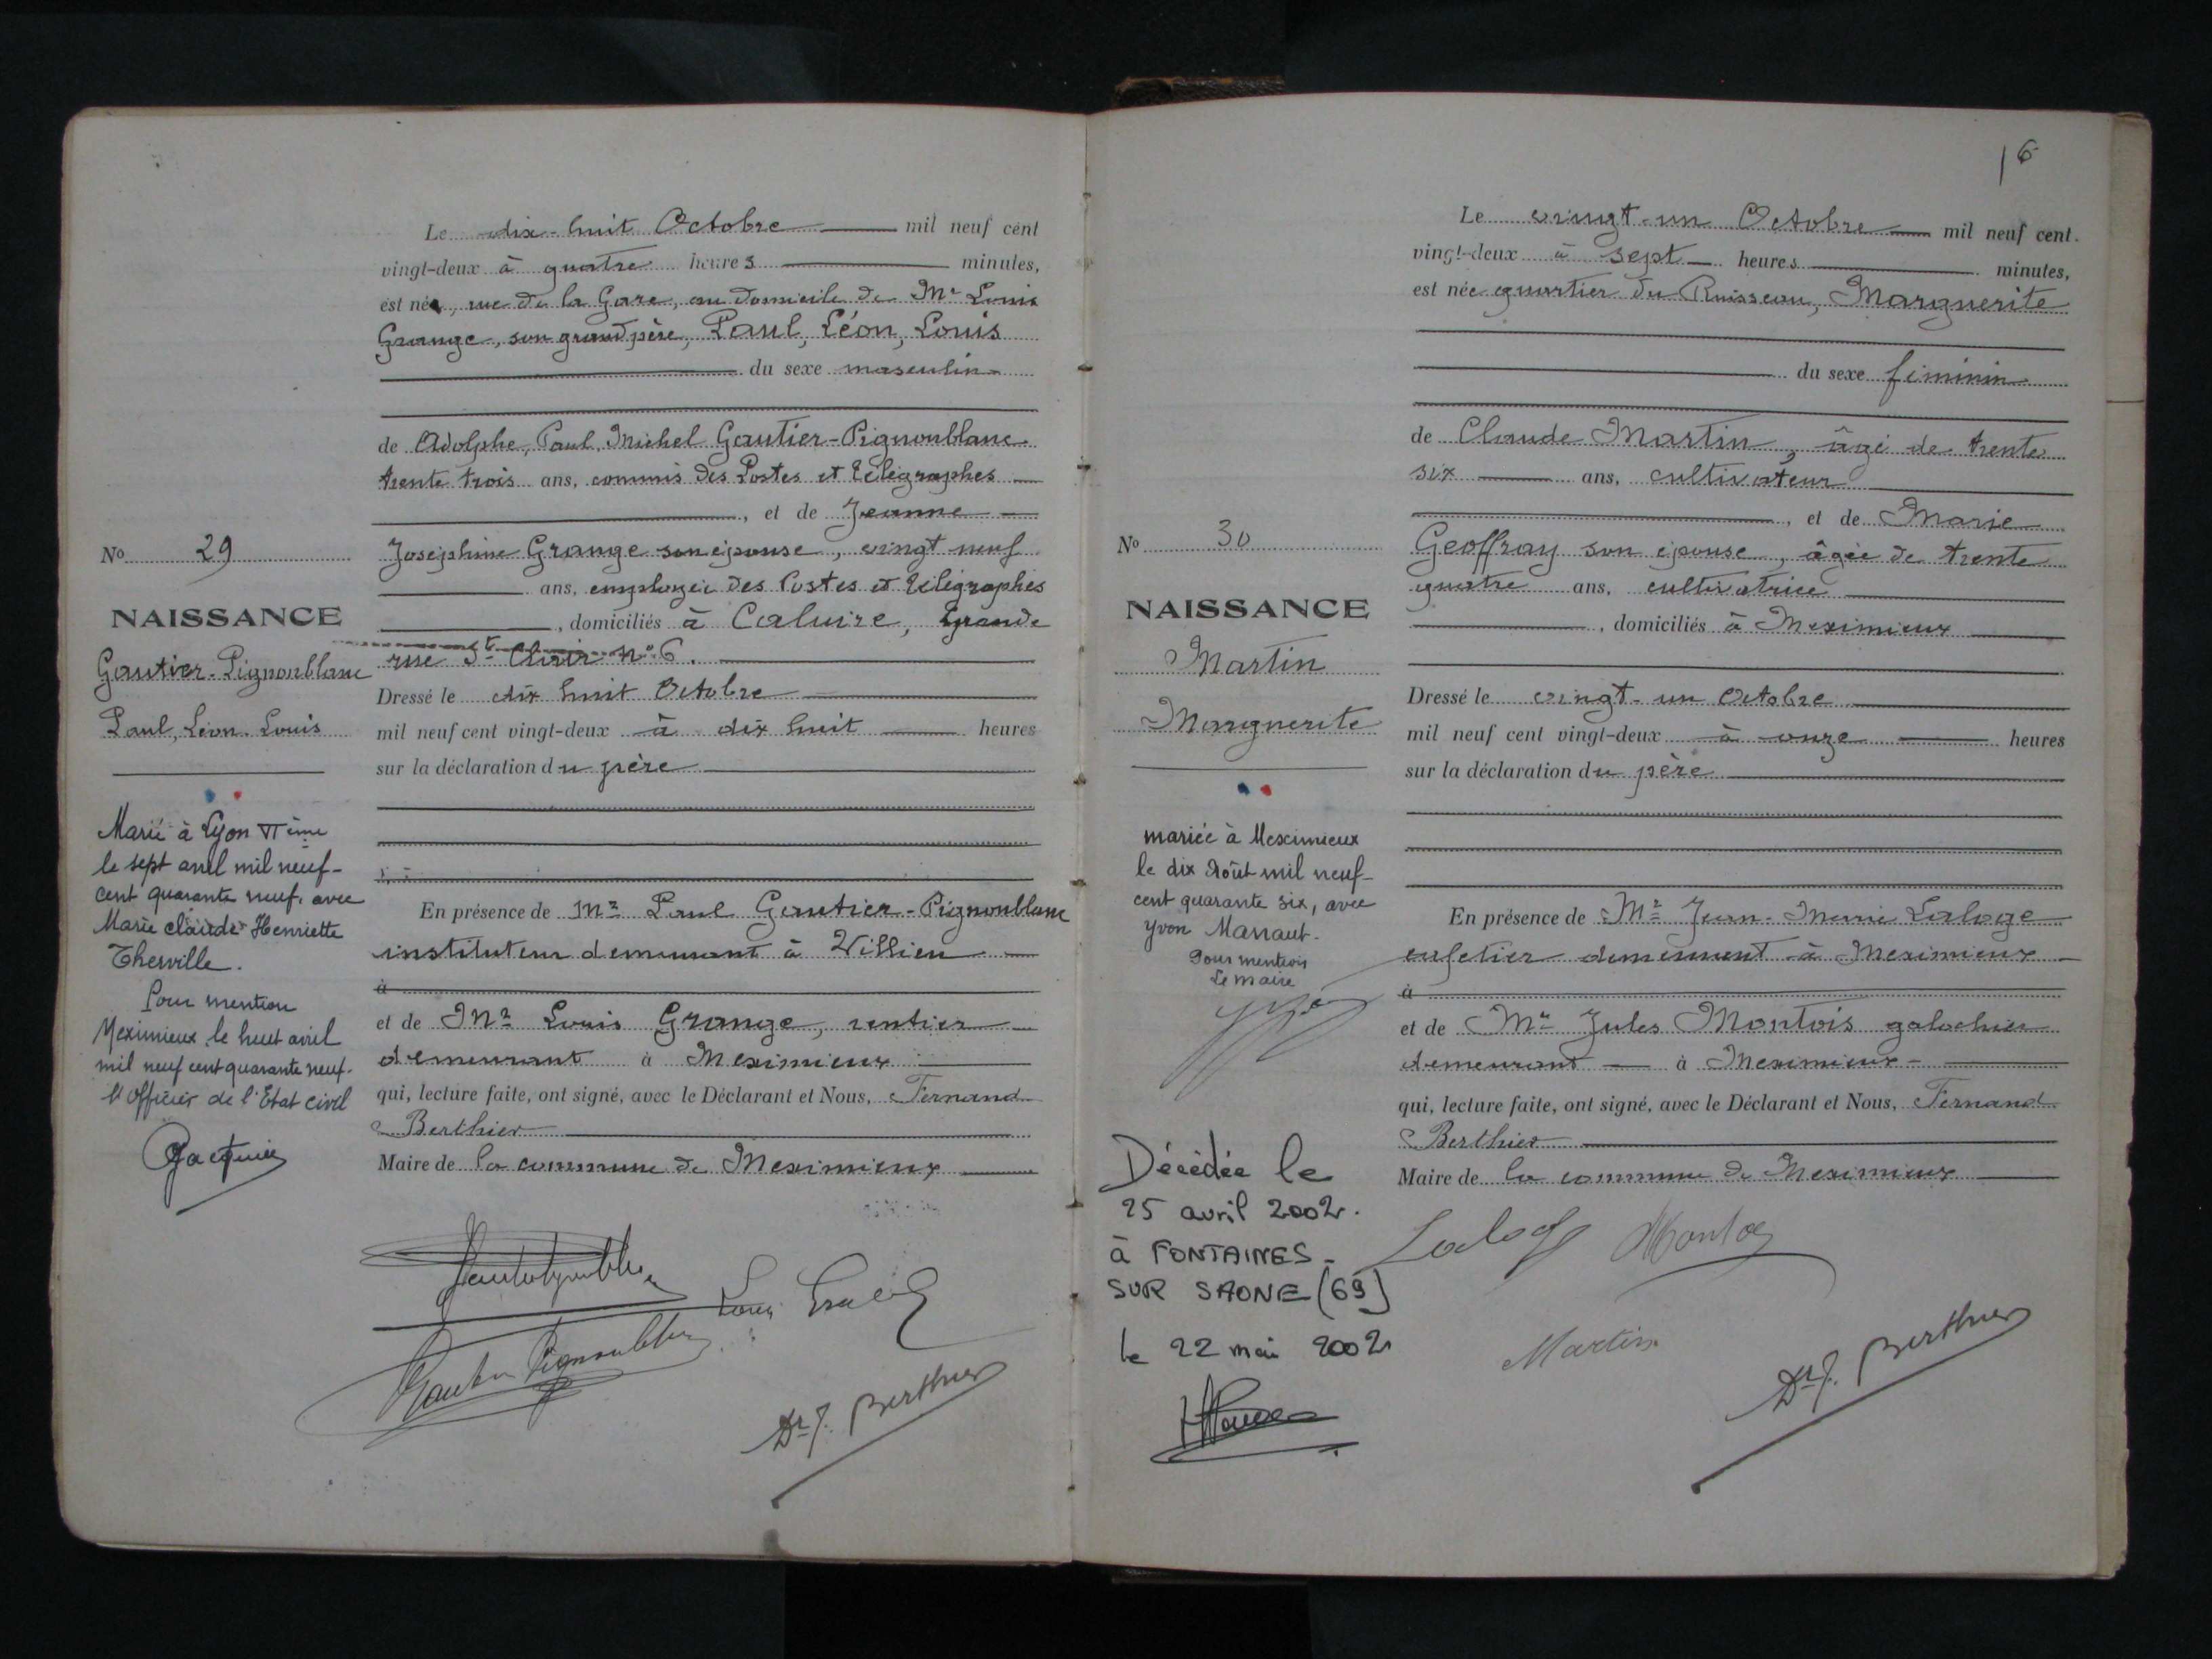 Le dix-huit Octobre mil neuf cent
vingt-deux à quatre heures minutes,
est né, rue de la Gare, au domicile de Mr Louis
Grange, son grand père, Paul, Léon, Louis
du sexe masculin
de Adolphe, Paul, Michel Gautier-Pignonblanc
trente trois ans, commis des Postes et Télégraphes
, et de Jeanne
No 29
Joséphine Grange son épouse, vingt neuf
ans, employée des Postes et Télégraphes
NAISSANCE
, domiciliés à Caluire, Grande
Gautier-Pignonblanc
rue St Clair no 6.
Dressé le dix huit Octobre
Paul, Léon, Louis
mil neuf cent vingt-deux à dix huit heures
sur la déclaration du père
Marié à Lyon
le sept avril mil neuf-
cent quarante neuf, avec
Marie Claude Henriette
Therville.
Pour mention
Meximieux le huit avril
mil neuf cent quarante neuf.
l'Officier de l'Etat civil
En présence de Mr Paul Gautier-Pignonblanc
instituteur demeurant à Villieu
à
et de Mr Louis Grange, rentier
demeurant à Meximieux
qui, lecture faite, ont signé, avec le Déclarant et Nous, Fernand
Berthier
Maire de la commune de Meximieux
Dr F. Berthier
16
Le vingt-un Octobre mil neuf cent
vingt-deux à sept heures minutes,
est née quartier du Ruisseau, Marguerite
du sexe féminin
de Claude Martin, âgé de trente
six ans, cultivateur
, et de Marie
No 30
Geoffray son épouse, âgée de trente
quatre ans, cultivatrice
NAISSANCE
, domiciliés à Meximieux
Martin
Dressé le vingt-un Octobre
Marguerite
mil neuf cent vingt-deux à onze heures
sur la déclaration du père
mariée à Meximieux
le dix Août mil neuf-
cent quarante six, avec
Yvon
Pour mention
Le maire
En présence de Mr Jean-Marie Laloge
cafetier demeurant à Meximieux
à
et de Mr Jules Montois galochier
demeurant à Meximieux
qui, lecture faite, ont signé, avec le Déclarant et Nous, Fernand
Berthier
Maire de la commune de Meximieux
Décédée le
25 avril 2002.
à FONTAINES-
SUR SAONE (69)
le 22 mai 2002
Laloge
Martin
Dr F. Berthier